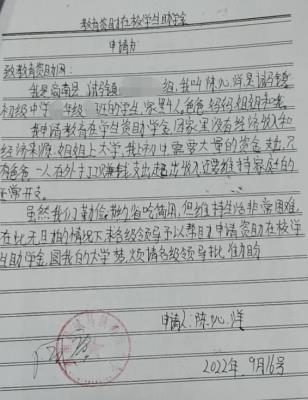 教育资助在校学生助学金
申请书
致教育资助网:
我是商南县 试马镇 组,我叫陈 祥是试马镇
初级中学 年级 班的学生,家里人爸爸妈妈姐姐和我
我申请教育在学生资助学金 因家里没有经济收入和
经济来源,姐姐上大学,我上初中需要大量的资金支出,只
有爸爸一人在外打工赚钱支出超出收入还要维持家庭的
正常开支。
虽然我们勤俭 勤劳省吃俭用,但维持生活非常困难,
在此无 的情况下 各级领导予以帮助申请资助在校学
生助学金,圆我的大学梦,烦请各级领导批准为盼
申请人:陈 祥
2022年 9月16号